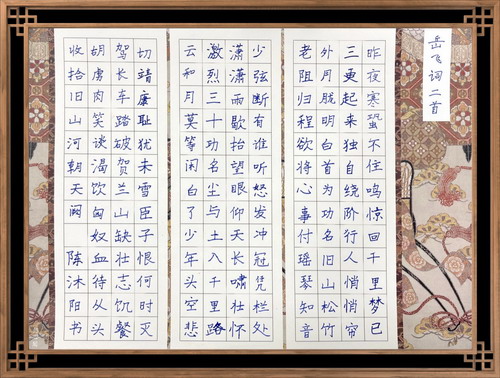 岳飞词二首
昨夜寒蛩不住鸣惊回千里梦已
三更起来独自绕阶行人悄悄帘
外月胧明白首为功名旧山松竹
老阻归程欲将心事付瑶琴知音
少弦断有谁听怒发冲冠凭栏处
潇潇雨歇抬望眼仰天长啸壮怀
激烈三十功名尘与土八千里路
云和月莫等闲白了少年头空悲
切靖康耻犹未雪臣子恨何时灭
驾长车踏破贺兰山缺壮志饥餐
胡虏肉笑谈渴饮匈奴血待从头
收拾旧山河朝天阙 陈沐阳书